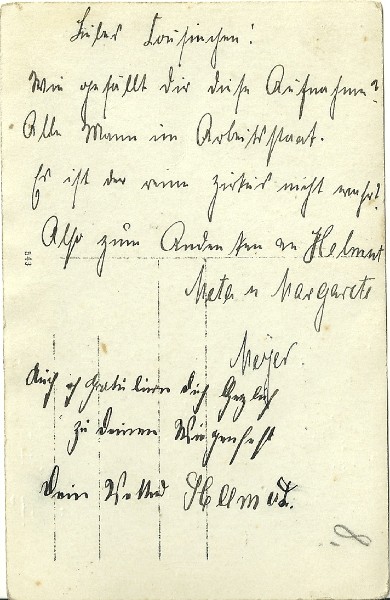 Liebes Cousinchen!
Wie gefällt dir diese Aufnahme?
Alle Mann im Arbeitsstaat.
Es ist der reine Zirkus nicht wahr?
Also zum Andenken an Helmut
Meta u Margarete
Meyer.
543
Auch ich gratuliere dich
zu deinem Wiegenfest
Dein Vetter Helmut.